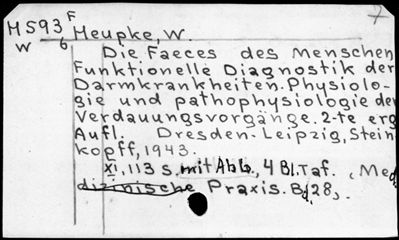 H593 F Heupke, W.
w 6
Die Faeces des Menschen
Funktionelle Diagnostik der
Darmkrankheiten. Physiolo-
gie und pathophysiologie der
Verdauungsvorgänge. 2-te erg
Aufl. Dresden-Leipzig, Stein
kopff, 1943.
XI, 113 s. mit Abb., 4 Bl. Taf. (Me
dizinische Praxis. Bd 28).